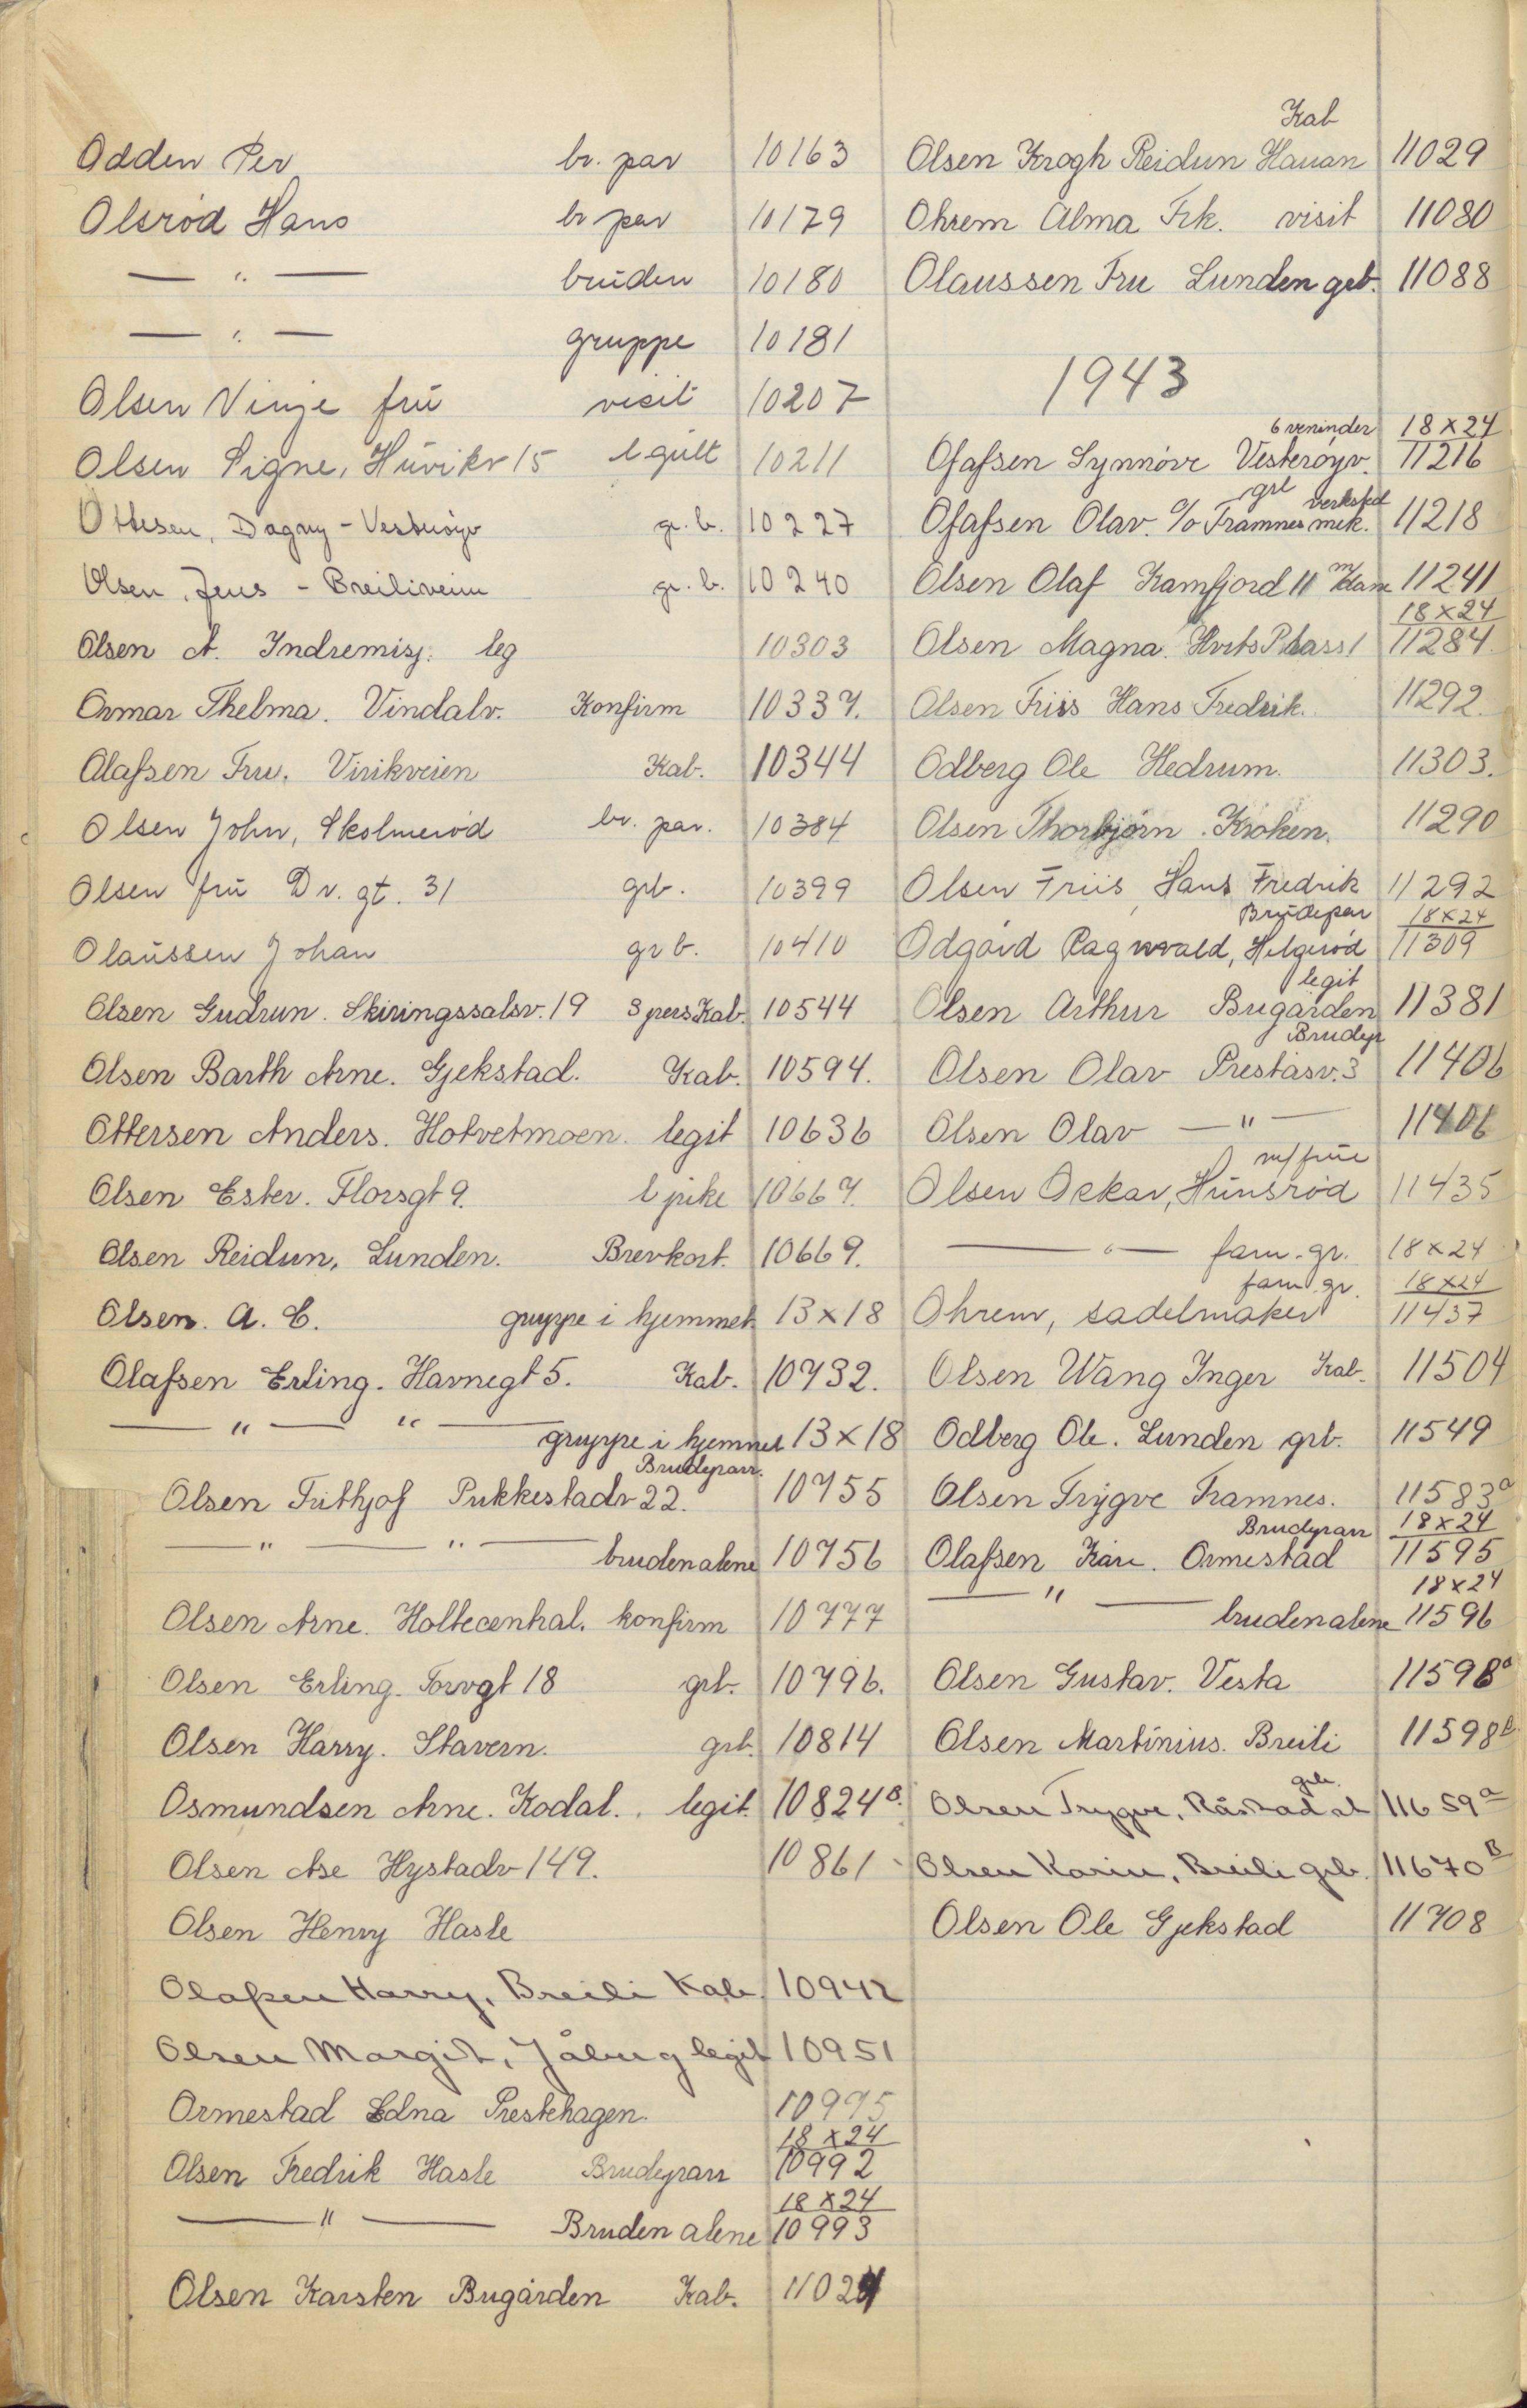 Odden Per br. par 10163
Olsrød Hans br par 10179
— " — bruden 10180
— " — gruppe 10181
Olsen Vinje frü visit 10207
Olsen Signe, Hüvikv 15 legilt 10211
Ottesen, Dagny - Vesterøyv gr. b. 10227
Olsen, Jens - Breiliveien gr. b. 10240
Olsen A. Indremisj. leg 10303
Ormar Thelma. Vindalv. Konfirm 10337.
Olafsen Fru. Virikveien Kab. 10344
Olsen John, Skolmerød br. par. 10384
Olsen frü Dr. gt. 31 grb. 10399
Olaüssen Johan grb. 10410
Olsen Gudrun. Skiringssalsv. 19 3 pers. Kab. 10544
Olsen Barth Arne. Gjekstad. Kab. 10594.
Ottersen Anders. Hotvetmoen. legit 10636
Olsen Ester. Florsgt 9. l pike 10667.
Olsen Reidun, Lunden. Brevkort. 10669.
Olsen. A. C. gruppe i hjemmet. 13x18
Olafsen Erling. Havnegt 5. Kab. 10732.
— " — " — gruppe i hjemmet 13x18
Brudeparr.
Olsen Frithjof Pukkestadv 22. 10755
— " — " — bruden alene 10756
Olsen Arne. Holtecentral. konfirm 10777
Olsen Erling. Torvgt 18 grb. 10796.
Olsen Harry. Stavern. grb. 10814
Osmundsen Arne. Kodal. legit. 10824 B.
Olsen Åse Hystadv 149. 10861
Olsen Henry Hasle
Olafsen Harry, Breili Kab. 10942
Olsen Margit, Jåberg legit 10951
Ormestad Edna Prestehagen. 10975
18x24
Olsen Fredrik Hasle Brudeparr 10992
18x24
— " — Bruden alene 10993
Olsen Karsten Bugården Kab. 11024
Kab
Olsen Krogh Reidun Hauan 11029
Ohrem Alma Frk. visit 11080
Olaussen Fru Lunden grb. 11088
1943
6 veninder 18x24
Olafsen Synnøve Vesterøyv. 11216
grl verksted
Olafsen Olav. c/o Framnes mek. 11218
Olsen Olaf Kamfjord 11 m/dame 11241
18x24
Olsen Magna. Hvits Plass 1 11284.
Olsen Friis Hans Fredrik. 11292.
Odberg Ole Hedrum. 11303.
Olsen Thorbjørn. Krøken. 11290
Olsen Friis, Hans Fredrik 11292
Brüdepar 18x24
Odgård Ragnvald, Helgerød 11309
legit
Olsen Arthur Bugården 11381
Brudep
Olsen Olav Preståsv. 3 11406
Olsen Olav — " — 11406
m/frue
Olsen Oskar, Hünsrød 11435
— " — fam. gr. 18x24
fam. gr. 18x24
Ohrem, sadelmaker 11437
Olsen Wang Inger Kab. 11504
Odberg Ole. Lunden grb. 11549
Olsen Trygve Framnes. 11583 a
Brudeparr 18x24
Olafsen Kåre. Ormestad 11595
18x24
— " — bruden alene 11596
Olsen Gustav. Vesta 11598 a
Olsen Martinius. Breili 11598 b.
grb.
Olsen Trygve, Råstad st 11659 a
Olsen Karin, Breili grb. 11670 B
Olsen Ole Gjekstad 11708